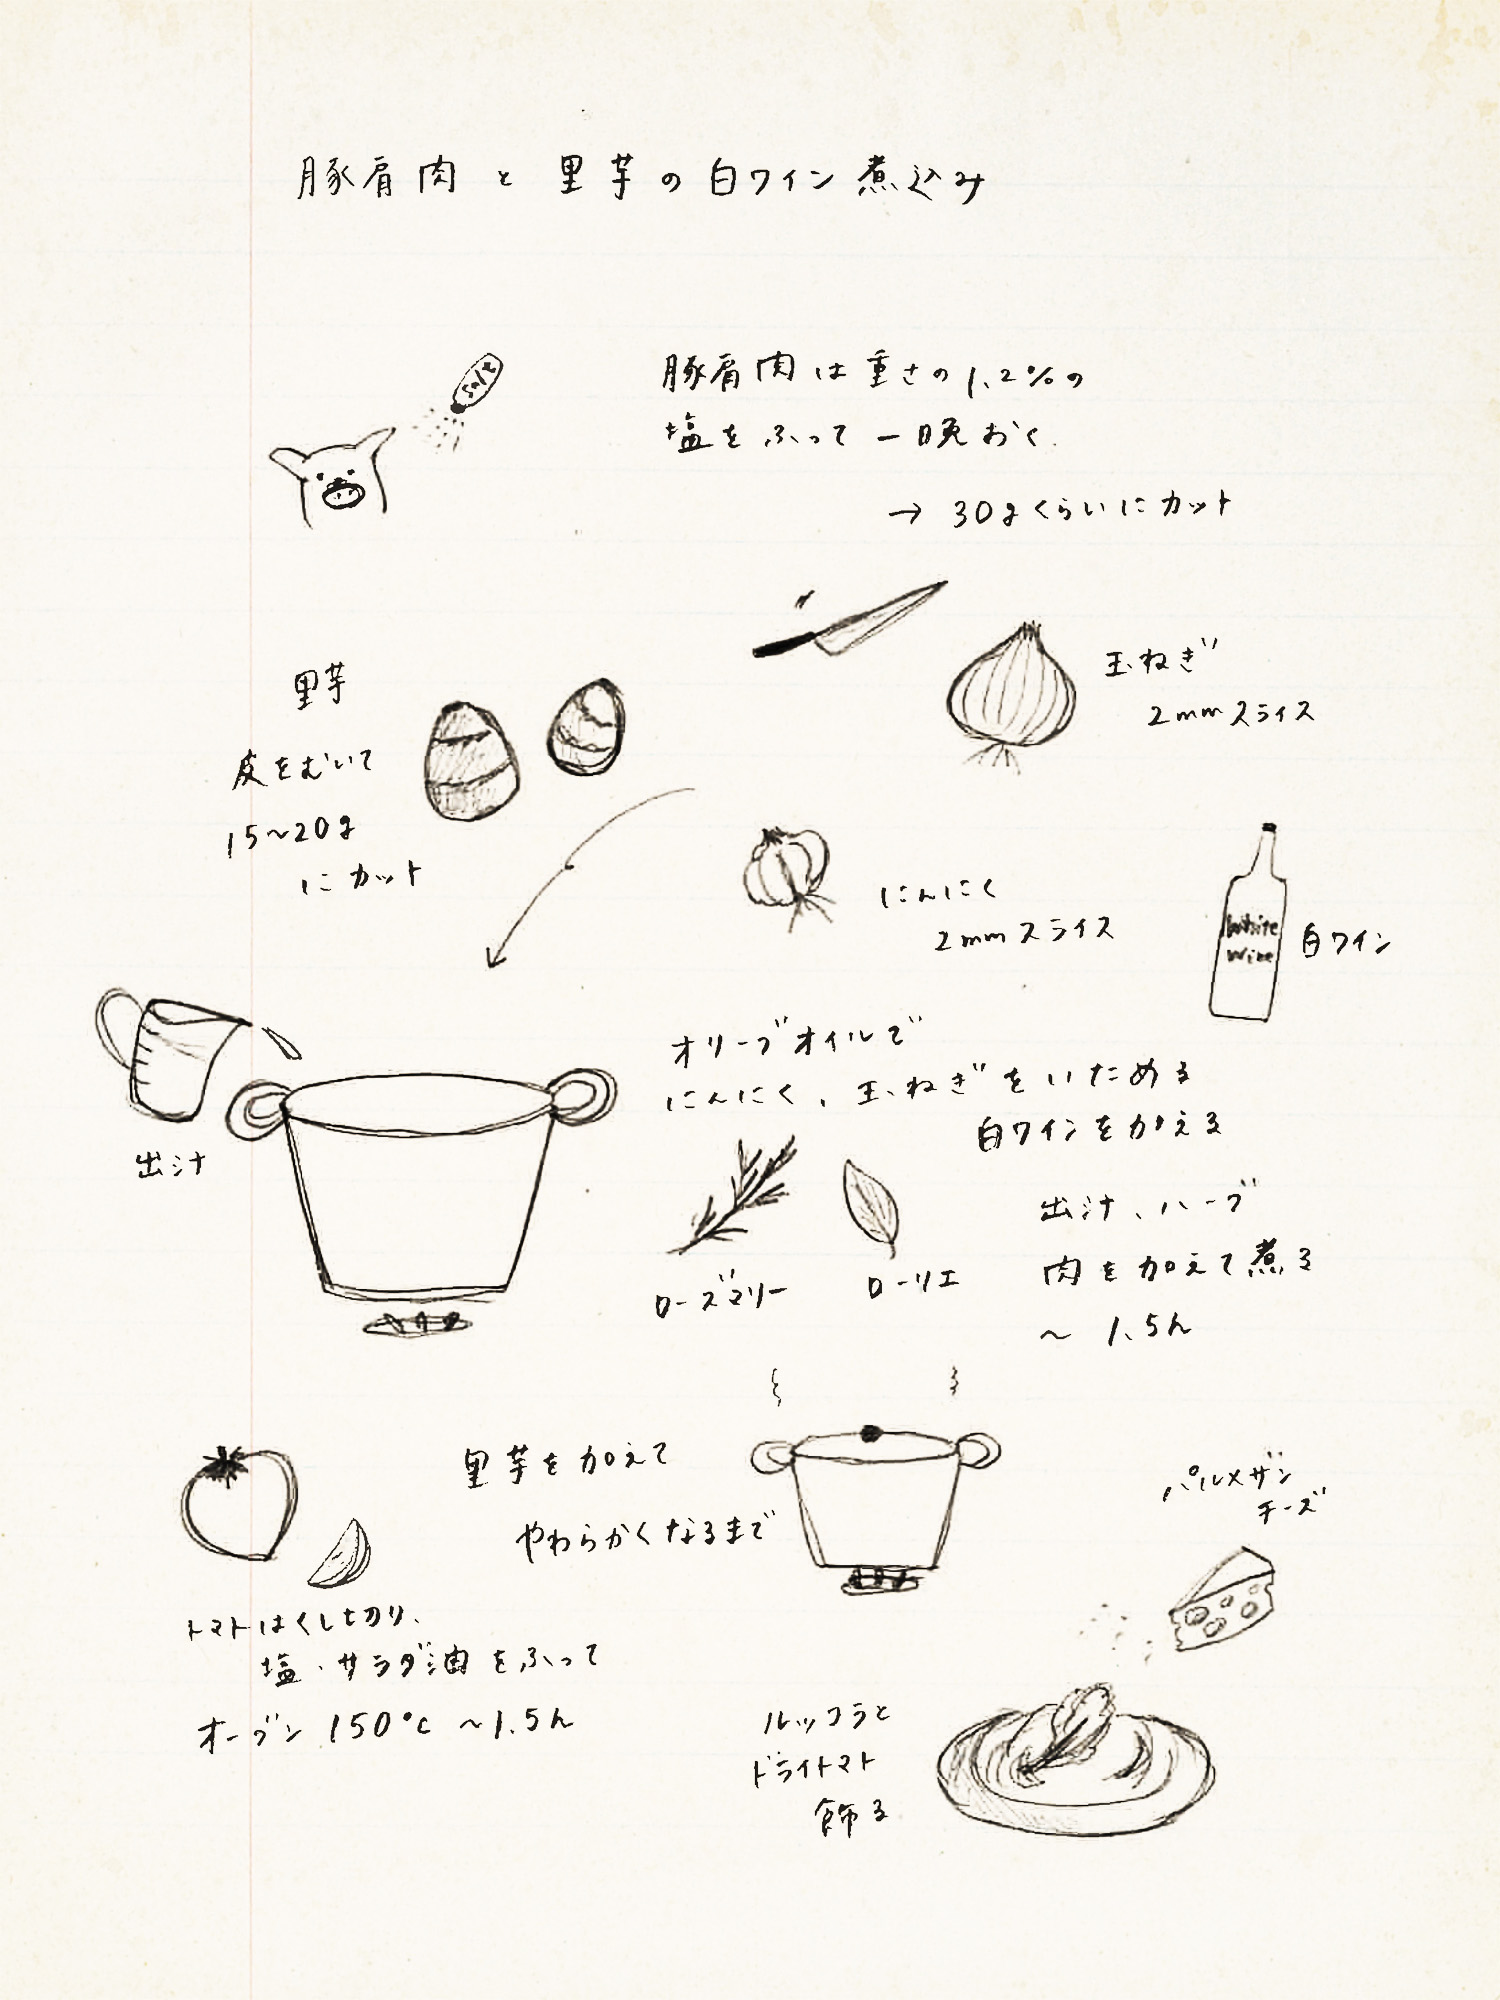 豚肩肉と里芋の白ワイン煮込み
salt
豚肩肉は重さの1.2%の
塩をふって一晩おく
→ 30gくらいにカット
里芋
皮をむいて
15~20g
にカット
玉ねぎ
2mmスライス
にんにく
2mmスライス
White
Wine
白ワイン
出汁
オリーブオイルで
にんにく、玉ねぎをいためる
白ワインを加える
ローズマリー
ローリエ
出汁、ハーブ
肉を加えて煮る
~ 1.5h
里芋を加えて
やわらかくなるまで
トマトはくし切り、
塩・サラダ油をふって
オーブン 150℃ ~1.5h
パルメザン
チーズ
ルッコラと
ドライトマト
飾る